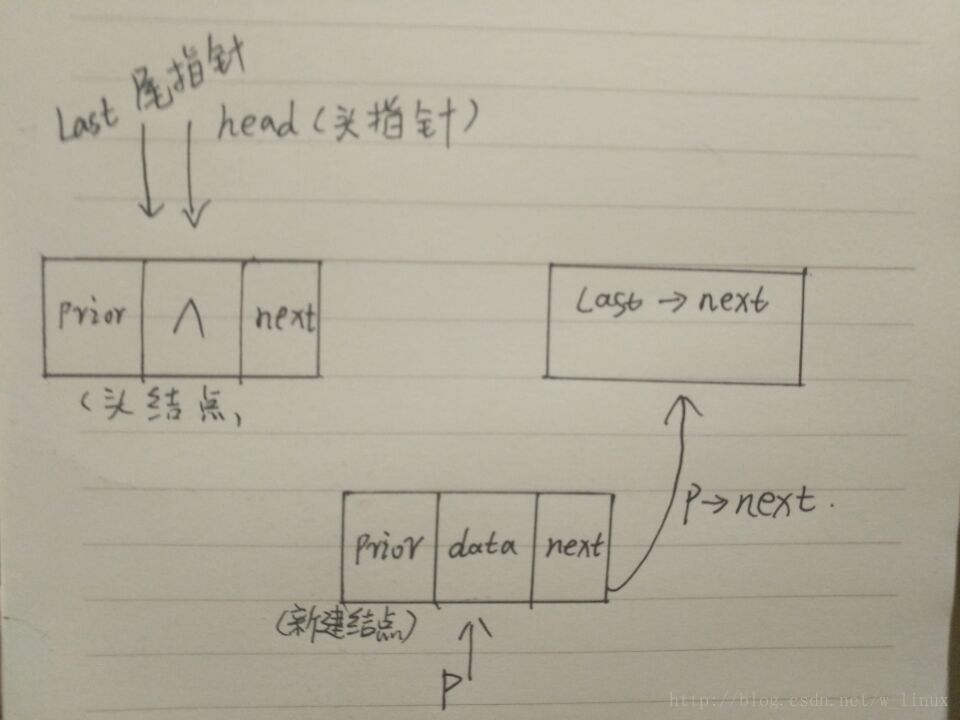 Last 尾指针
head (头指针)
prior ∧ next
(头结点)
Last → next
P→next.
prior data next
(新建结点)
P
http://blog.csdn.net/w_linux